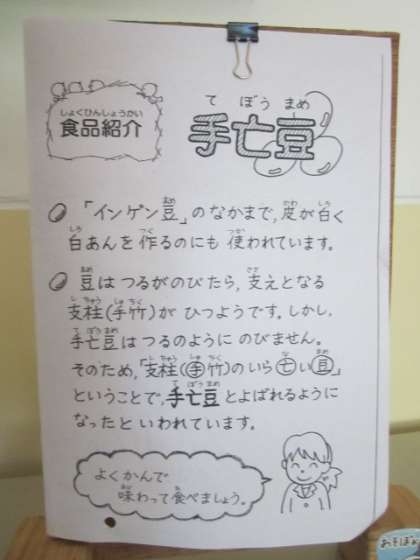 食品紹介
手亡豆
「インゲン豆」のなかまで、皮が白く
白あんを作るのにも使われています。
豆はつるがのびたら、支えとなる
支柱(手竹)がひつようです。しかし、
手亡豆はつるのようにのびません。
そのため、「支柱(手竹)のいら亡い豆」
ということで、手亡豆とよばれるように
なったといわれています。
よくかんで
味わって食べましょう。